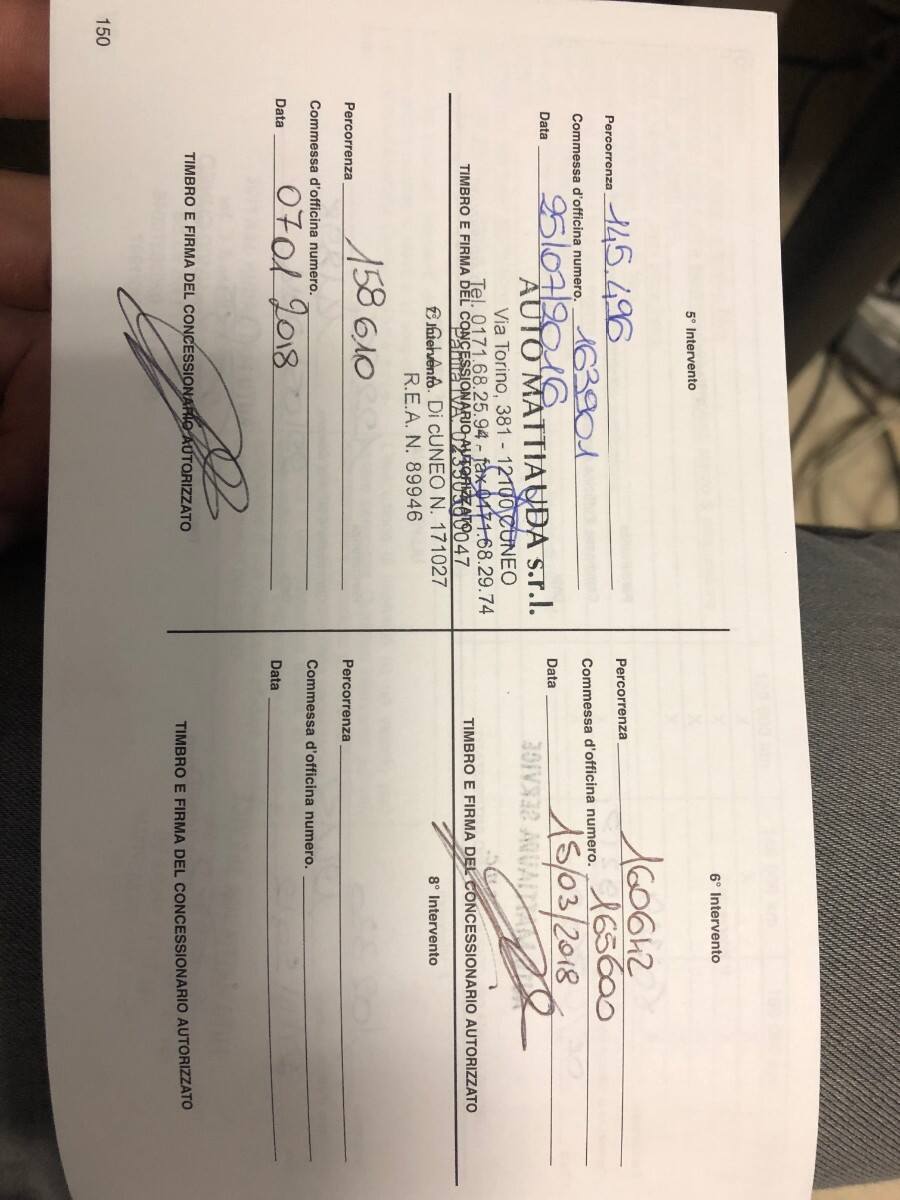 5° Intervento
Percorrenza 145.496
Commessa d'officina numero. 163901
Data 25/07/2016
AUTO MATTIAUDA s.r.l.
Via Torino, 381 - 12100 CUNEO
Tel. 0171.68.25.94 - fax 0171.68.29.74
TIMBRO E FIRMA DEL CONCESSIONARIO AUTORIZZATO
Partita IVA
C.C.I.A.A. Di cUNEO N. 171027
R.E.A. N. 89946
6° Intervento
Percorrenza 160642
Commessa d'officina numero. 165600
Data 15/03/2018
TIMBRO E FIRMA DEL CONCESSIONARIO AUTORIZZATO
7° Intervento
Percorrenza 158610
Commessa d'officina numero.
Data 07 01 2018
TIMBRO E FIRMA DEL CONCESSIONARIO AUTORIZZATO
8° Intervento
Percorrenza
Commessa d'officina numero.
Data
TIMBRO E FIRMA DEL CONCESSIONARIO AUTORIZZATO
150